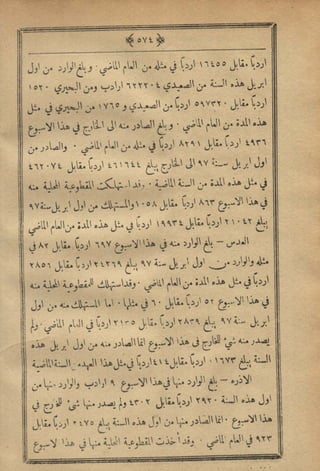 ﴿ ٥٧٤ ﴾
اردبًا مقابل ١٦٤٥٥ اردبًا في مثله من العام الماضي. وبلغ الوارد من اول
ابريل هذه السنة من الصعيدي ٦٢٢٢٠٤ ارادب ومن البحيري ١٥٢٠
اردبًا مقابل ٥٩٧٣٢٠ اردبًا من الصعيدي و ١٧٦٥ من البحيري في مثل
هذه المدة من العام الماضي. وبلغ الصادر منه الى الخارج في هذا الاسبوع
٤٩٣٦ اردبًا مقابل ٨٢٩١ اردبًا في مثله من العام الماضي. والصادر من
اول ابريل سنة ٩٧ الى الخارج يبلغ ٤٦١٦٤٤ اردبًا مقابل ٤٦٢٠٧٤
في مثل هذه المدة من السنة الماضية. وقد استهلكت المقطوعية المحلية منه
في هذا الاسبوع ٨٦٣ اردبًا مقابل ١٠٥٨ والمستهلك من اول ابريل سنة ٩٧
يبلغ ٢١٠٤٢ اردبًا مقابل ١٩٩٣٤ اردبًا في مثل هذه المدة من العام الماضي
العدس – بلغ الوارد منه في هذا الاسبوع ٦٩٧ اردبًا مقابل ٨٢ في
مثله والوارد من اول ابريل سنة ٩٧ يبلغ ٢٤٢٦٩ اردبًا مقابل ٢٨٥٦
اردبًا في مثل هذه المدة من العام الماضي. وقد استهلك للمقطوعية المحلية منه
في هذا الاسبوع ٥٢ اردبًا مقابل ٦٠ في مثلها. اما المستهلك منه من اول
ابريل سنة ٩٧ يبلغ ٢٨٣٩ اردبًا مقابل ٢١٣٥ اردبًا في العام الماضي. ولم
يصدر منه شيء للخارج في هذا الاسبوع انما الصادر منه من اول ابريل هذه
السنة يبلغ ١٦٧٣. اردبًا مقابل ٤١٤ اردبًا في مثل هذا العهد من السنة الماضية
الاذره – بلغ الوارد منها في هذا الاسبوع ٩ ارادب والوارد منها من
اول هذه السنة ٢٩٢٠ اردبًا مقابل ٤٣٠٢ ولم يصدر منها شيء للخارج في
هذا الاسبوع. انما الصادر منها من اول هذه السنة يبلغ ٤٧٥ اردبًا مقابل
٩٢٣ في العام الماضي. وقد اخذت المقطوعية المحلية منها في هذا الاسبوع